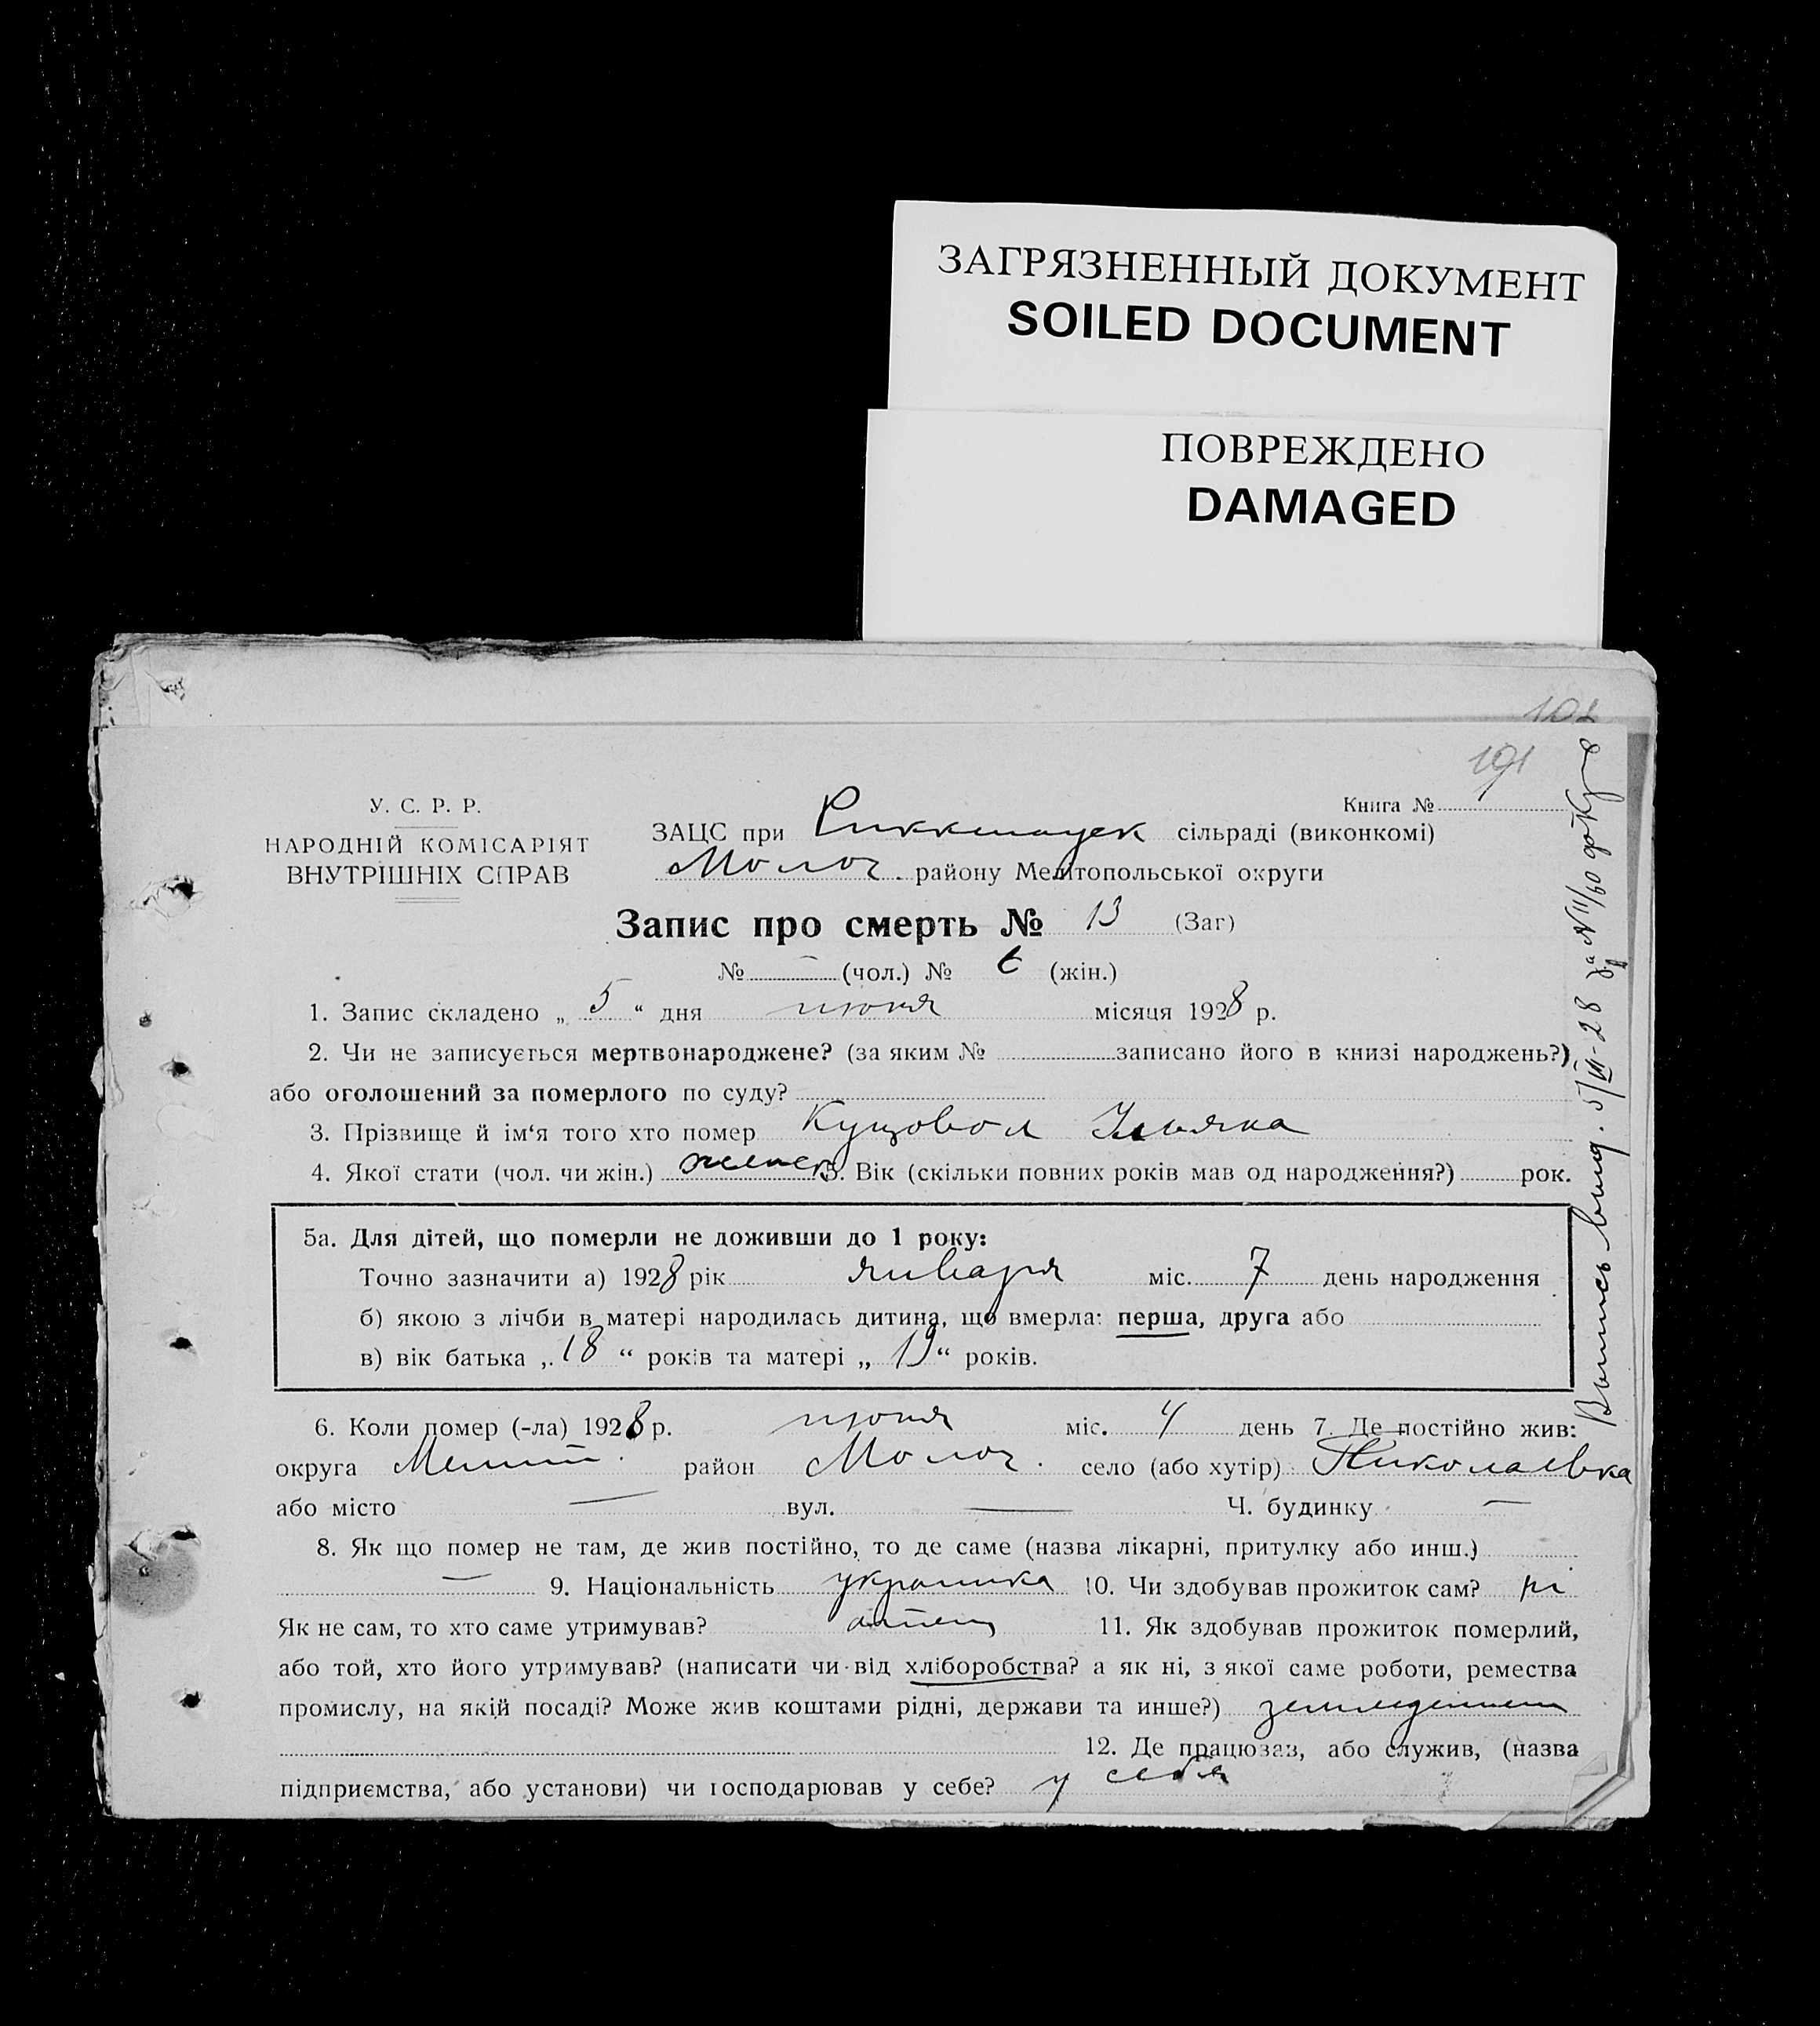 ЗАГРЯЗНЕННЫЙ ДОКУМЕНТ
SOILED DOCUMENT
ПОВРЕЖДЕНО
DAMAGED
191
У. С. Р. Р.
НАРОДНІЙ КОМІСАРІЯТ
ВНУТРІШНІХ СПРАВ
Книга №
ЗАЦС при сільраді (виконкомі)
Молоч. району Мелітопольської округи
Запис про смерть № 13 (Заг)
№ – (чол.) № 6 (жін.)
1. Запис складено „ 5 “ дня июня місяця 1928 р.
2. Чи не записується мертвонароджене? (за яким № записано його в книзі народжень?)
або оголошений за померлого по суду?
3. Прізвище й ім‘я того хто помер
4. Якої стати (чол. чи жін.) женск 5. Вік (скільки повних років мав од народження?) рок.
5а. Для дітей, що померли не доживши до 1 року:
Точно зазначити а) 1928 рік января міс. 7 день народження
б) якою з лічби в матері народилась дитина, що вмерла: перша, друга або
в) вік батька „ 18 “ років та матері „ 19 “ років.
6. Коли помер (-ла) 1928 р. июня міс. 4 день 7. Де постійно жив:
округа Мелит. район Молоч. село (або хутір) Николаевка
або місто — вул. — Ч. будинку —
8. Як що помер не там, де жив постійно, то де саме (назва лікарні, притулку або инш.)
— 9. Національність украинка 10. Чи здобував прожиток сам? ні
Як не сам, то хто саме утримував? отец 11. Як здобував прожиток померлий,
або той, хто його утримував? (написати чи від хліборобства? а як ні, з якої саме роботи, ремества
промислу, на якій посаді? Може жив коштами рідні, держави та инше?)
12. Де працював, або служив, (назва
підприємства, або установи) чи господарював у себе? у себя
Выпись выд. 5/VII-28 за № 11/60